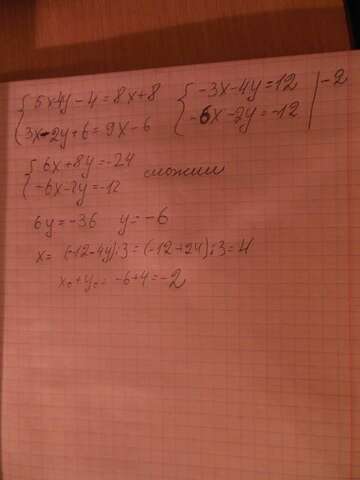 { 5x-4y-4=8x+8 { -3x-4y=12 | -2
{ 3x-2y+6=9x-6 { -6x-2y=-12
{ 6x+8y=-24
{ -6x-2y=-12 сложим
6y=-36 y=-6
x= (-12-4y):3=(-12+24):3=4
x₀+y₀=-6+4=-2